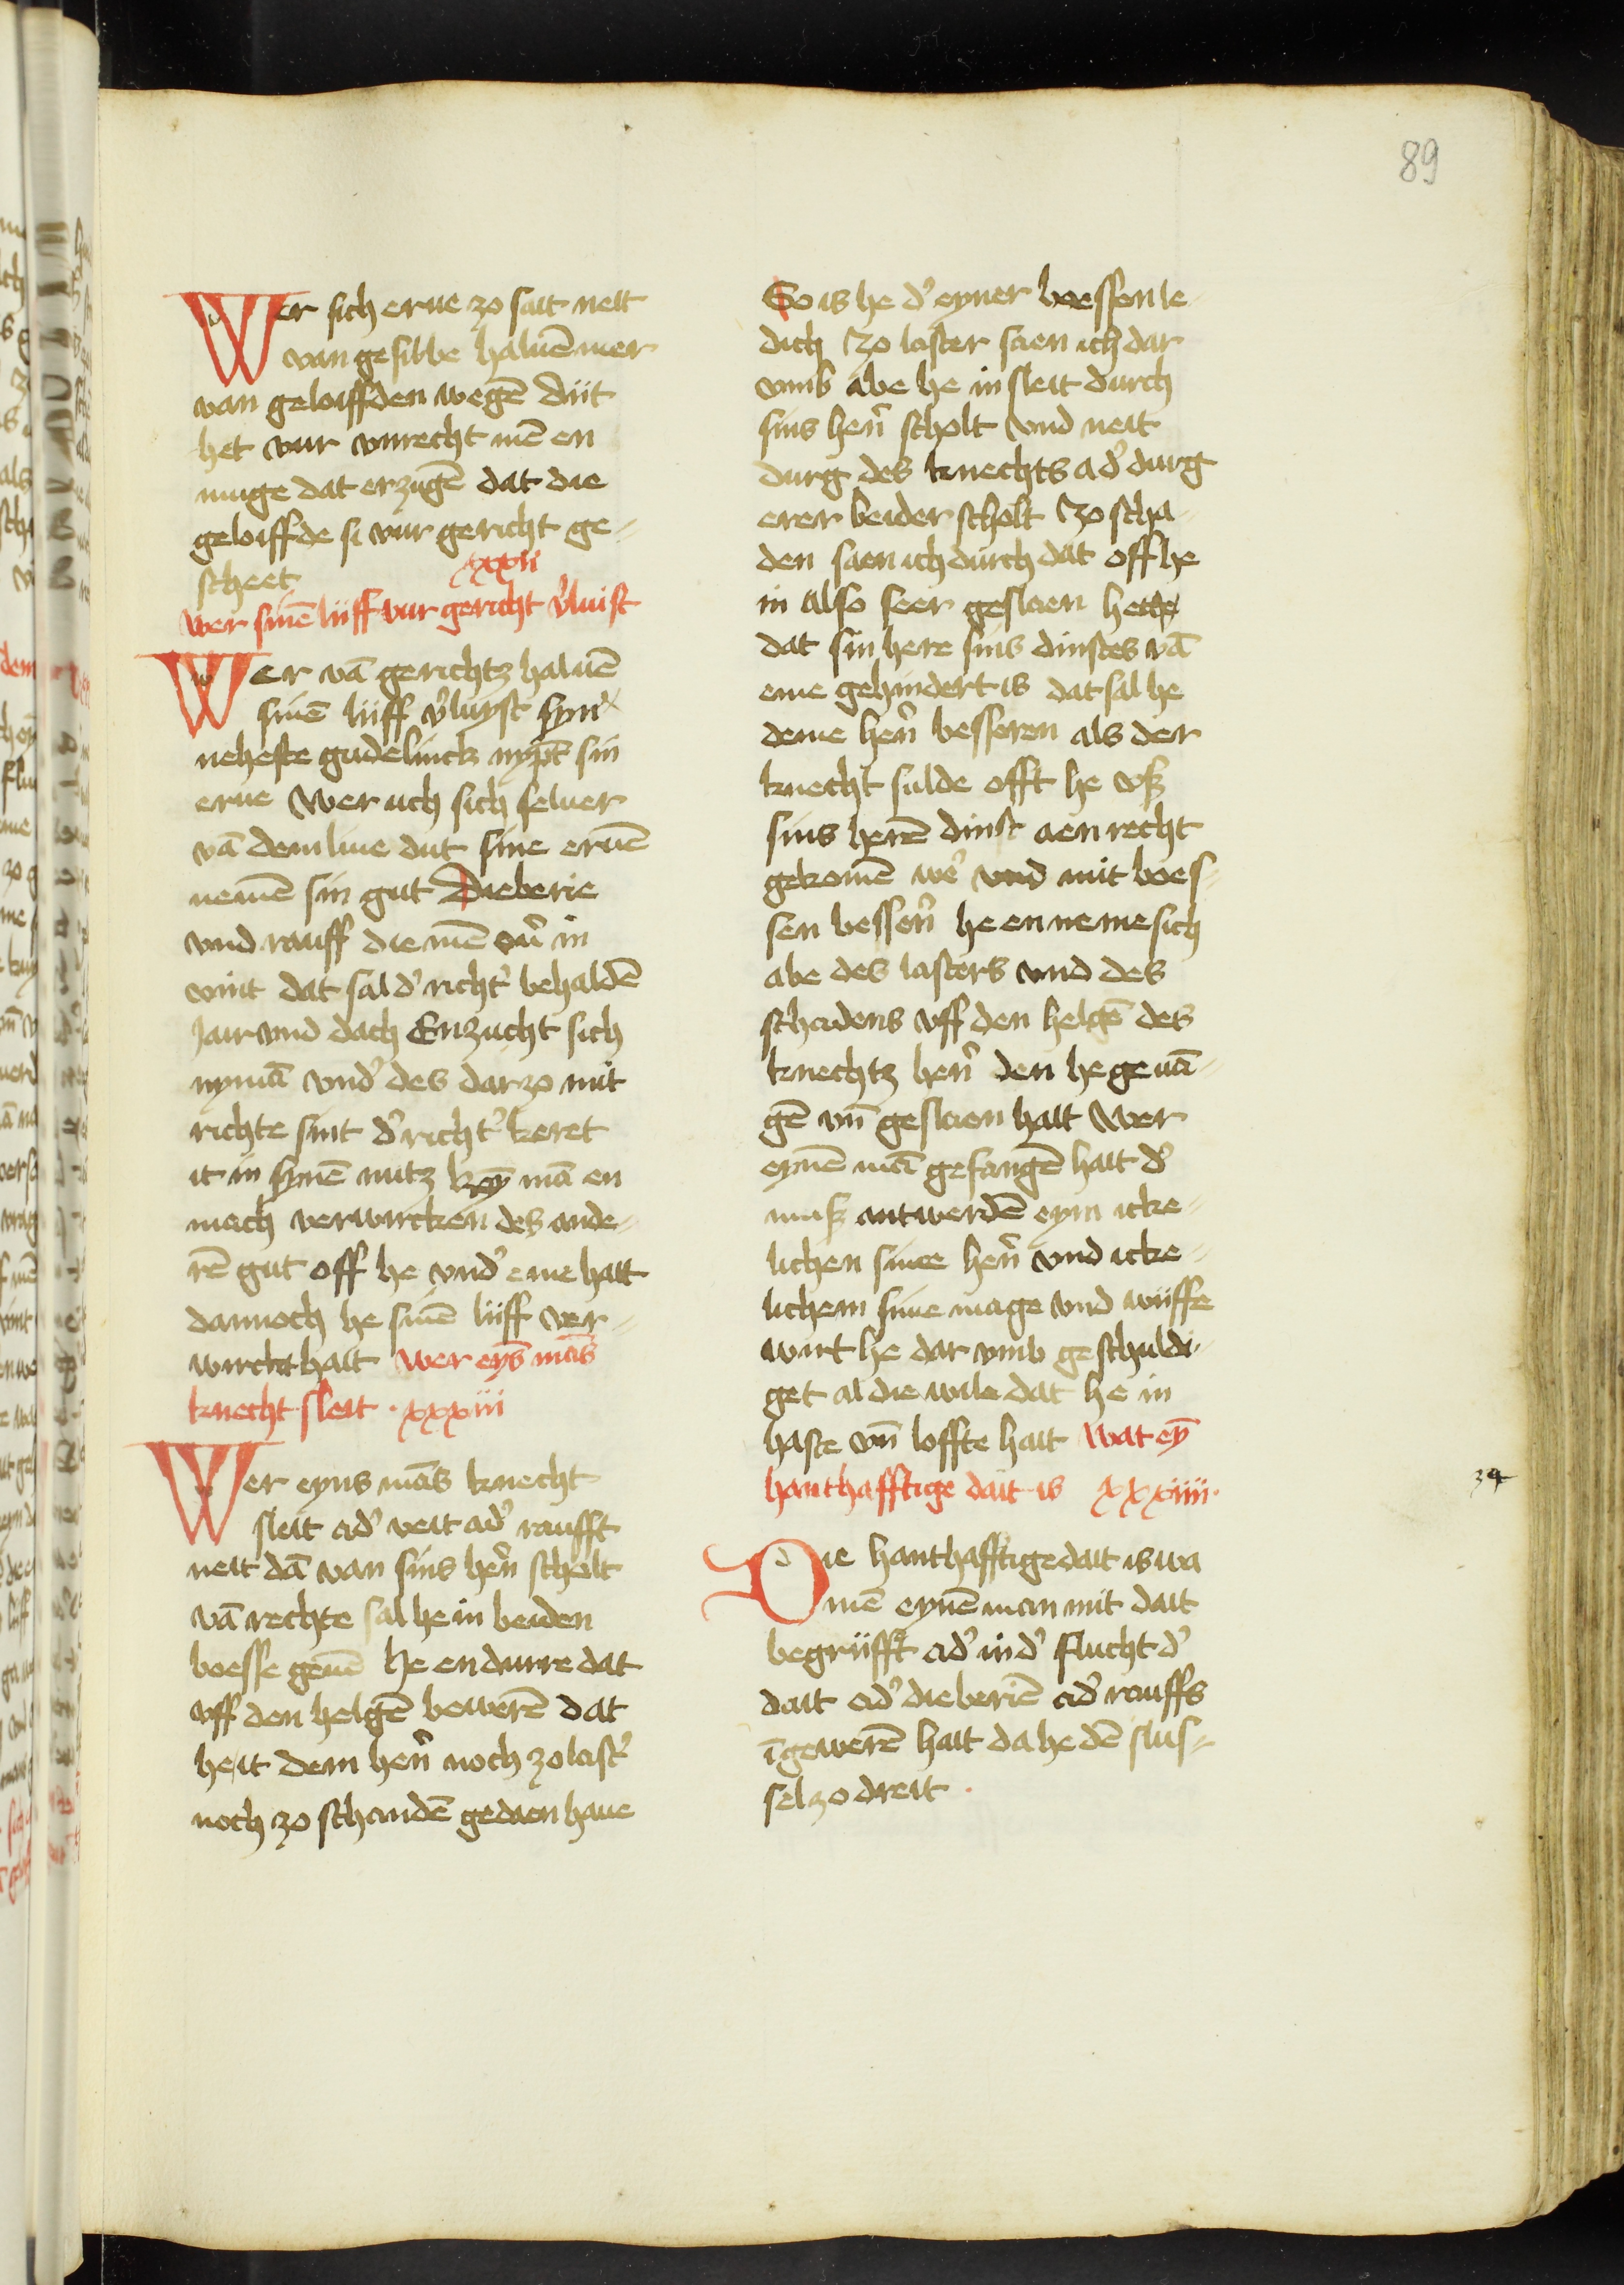 89
Wer sich erue zo sait neit
van gesibbe haluē mer
van geloiffden wegē düt
het vur vnrecht mē en
muge dat erzugē dat die
geloiffde si vur gericht ge-
scheet xxxii
Wer sinē lüff vur gericht v'luist
Wer vā gerichtz haluē
sinē lüff v'luyst syn
neheste gadelinck nypt sin
erue Wer uch sich seluer
vā dem liue dut sine eruē
nemē sin gut Dieberie
vnd rauff die mē ou' in
vint dat sal d' richt' behaldē
Jair vnd dach Enzucht sich
nymā vnd' des dar zo mit
richte sint d' richt' keret
it in synē nutz key mā en
mach verwircken des ande-
rē gut off he vnd' eme hait
dannoch he sinē lüff ver-
wirckt hait Wer eyns mās
knecht sleit · xxxiii
Wer eyns māns knecht
sleit ad' veit ad' raufft
neit dā van sins hen' scholt
vā rechte sal he in beiden
boesse geuē he en durre dat
vff den helgē bewerē dat
he it dem hen' noch zo last'
noch zo schandē gedaen haue
So is he d' eyner boessen le
dich Zo laster saen ich dar
vmb abe he in sleit durch
sins hen' scholt vnd neit
durg des knechts ad' durg
erer beider scholt Zo scha-
den saen ich durch dat off he
in also seer geslaen hette
dat sin here sins dinstes vā
eme gehindert is dat sal he
deme hen' besseren als der
knecht sulde offt he vß
sins herē dinst aen recht
gekomē we' vnd mit boes-
sen bessen' he en neme sich
abe des lasters vnd des
schadens vff den helgē des
knechtz hen' den he geuā-
gē vn̄ geslaen hait Wer
eynē mā gefangē hait d'
muß antwerdē eym icke-
lichen sinee hen' vnd icke-
lichem sine mage vnd wüffe
wirt he dar vmb geschuldi-
get al die wile dat he in
haste vn̄ loffte hait Wat ey
hanthafftige dait is xxxiiii·
34
Die hanthafftige dait is wa
mē eynē man mit dait
begrüfft ad' in d' flucht d'
dait ad' dieberiē ad' rauffs
ī gewerē hait da he dē slus-
sel zo dreit ·